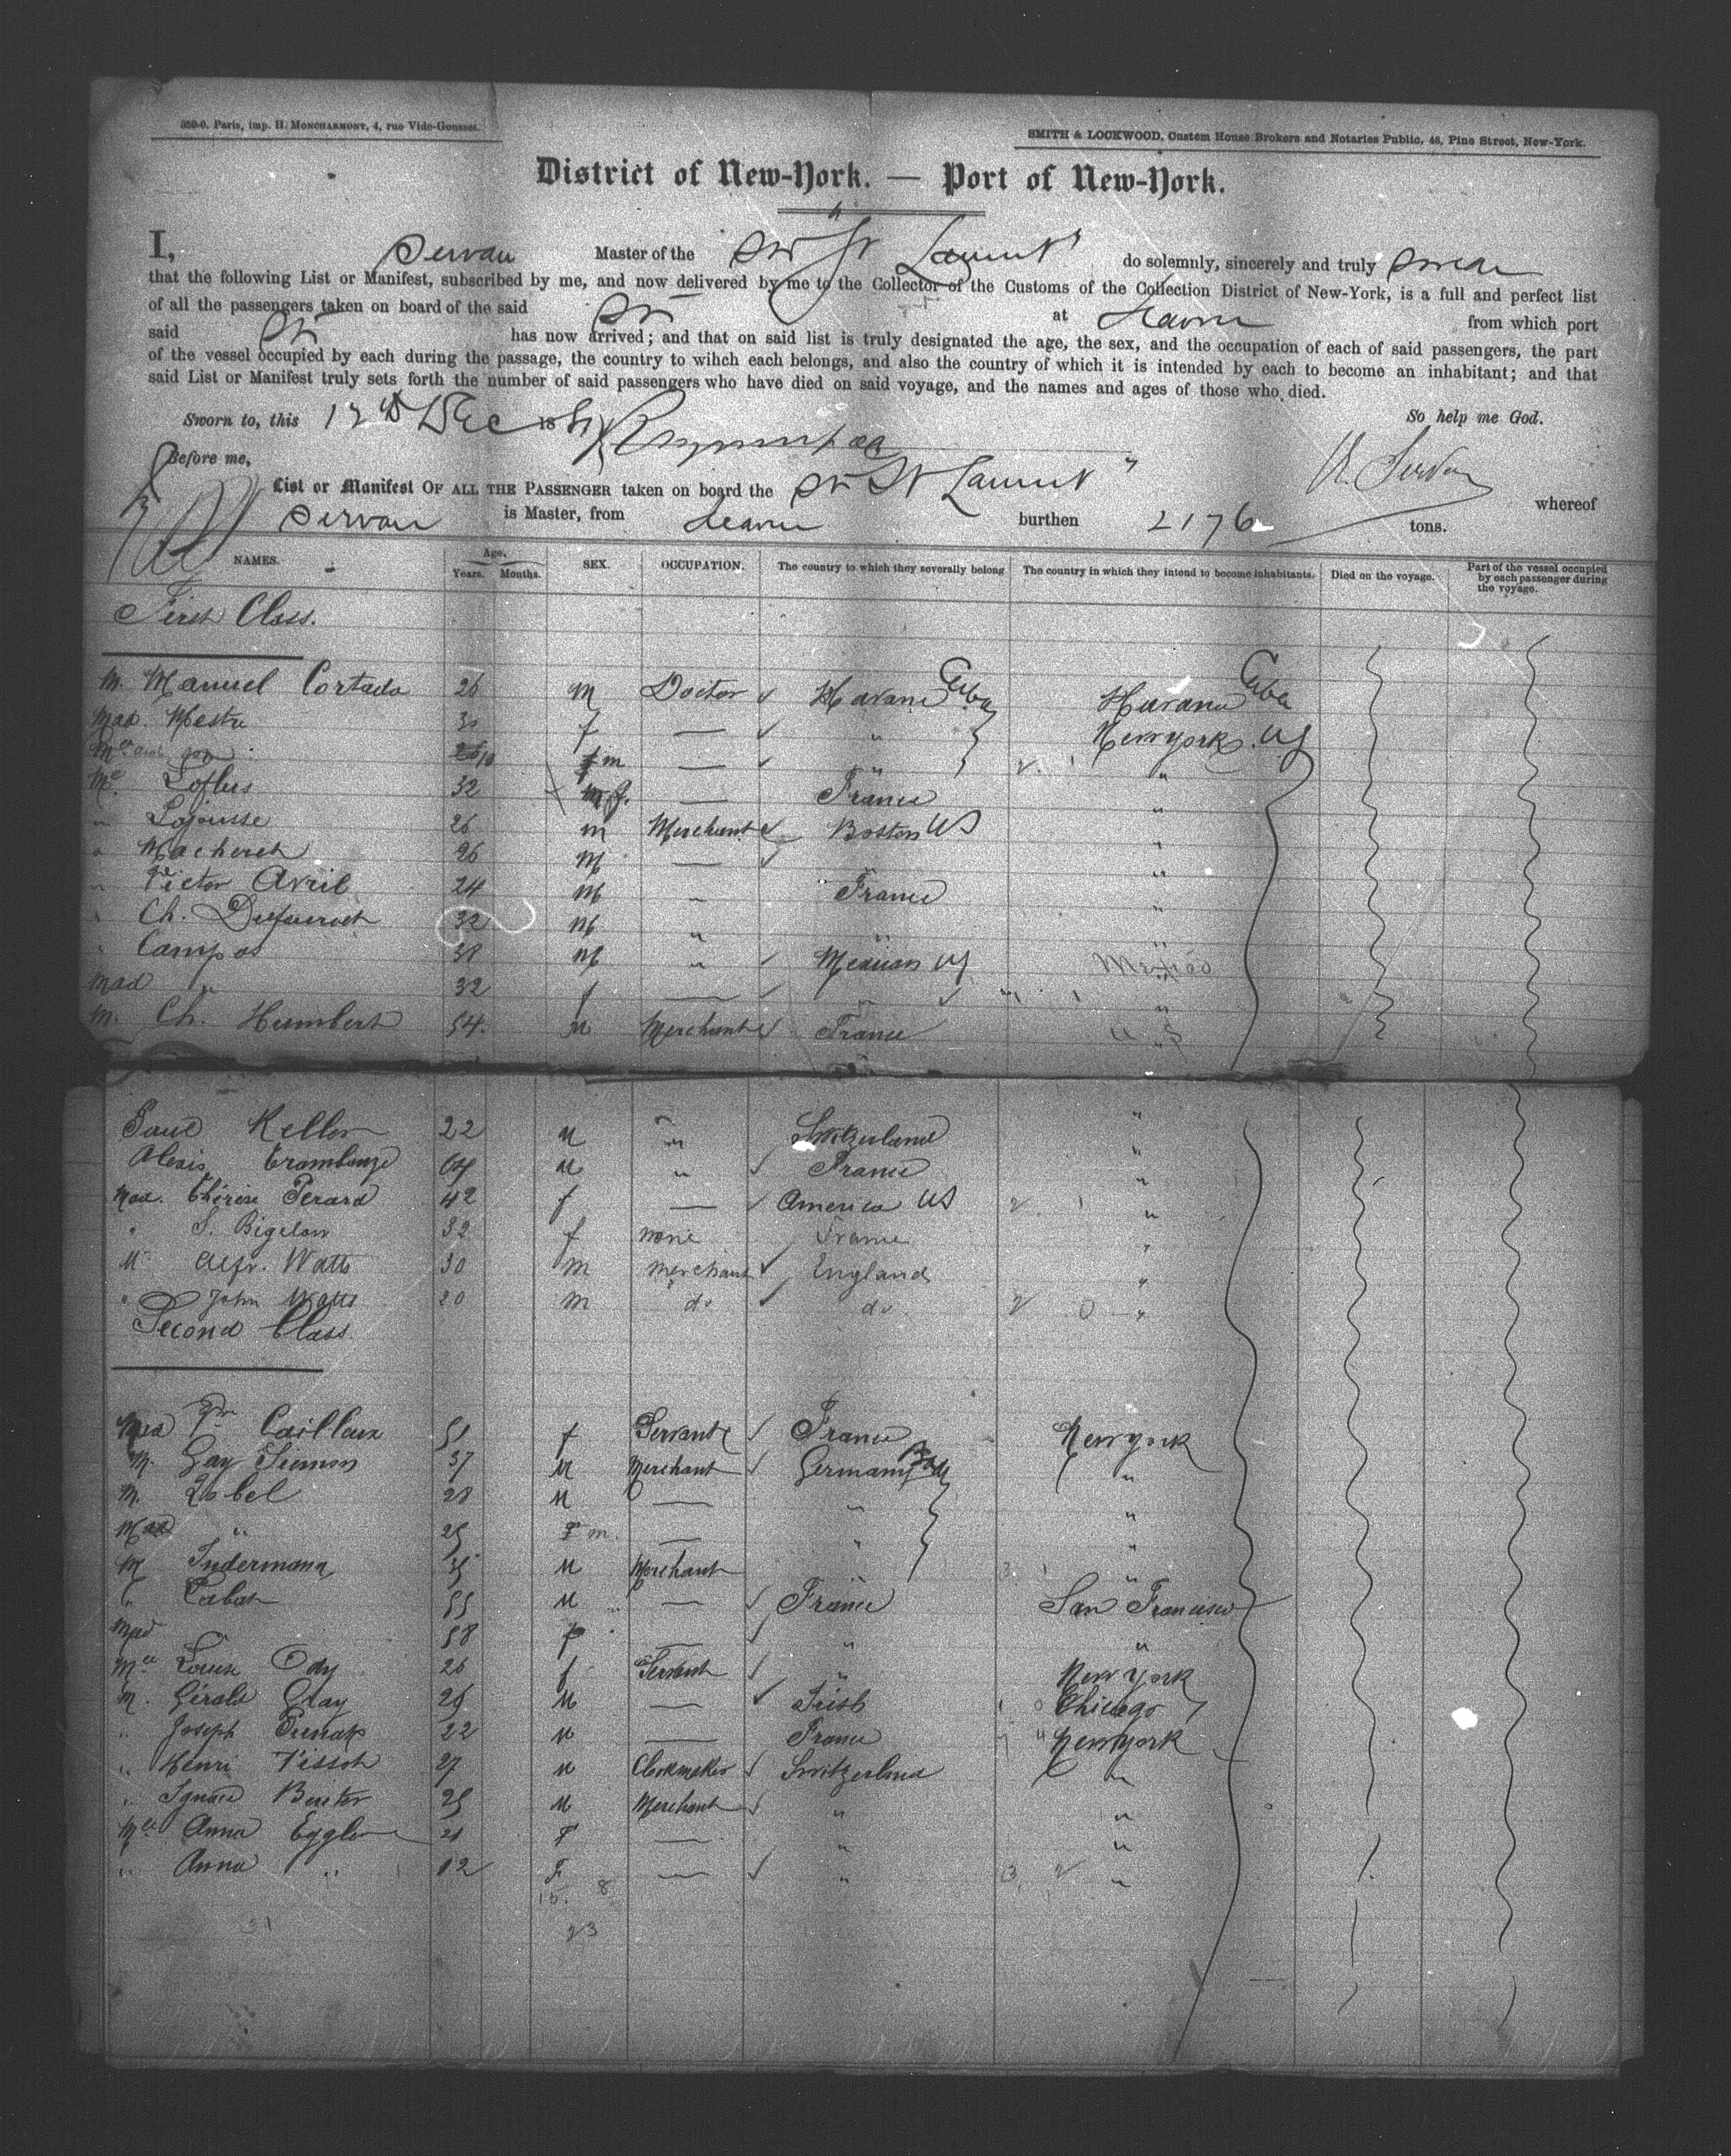 350-0. Paris, imp. H. MONCHARMONT, 4, rue Vide-Gousset.
SMITH & LOCKWOOD, Custom House Brokers and Notaries Public, 48, Pine Street, New-York.
District of New-York. — Port of New-York.
I, Servan Master of the Str St Laurent do solemnly, sincerely and truly swear
that the following List or Manifest, subscribed by me, and now delivered by me to the Collector of the Customs of the Collection District of New-York, is a full and perfect list
of all the passengers taken on board of the said Str at Havre from which port
said Str has now arrived; and that on said list is truly designated the age, the sex, and the occupation of each of said passengers, the part
of the vessel occupied by each during the passage, the country to wihch each belongs, and also the country of which it is intended by each to become an inhabitant; and that
said List or Manifest truly sets forth the number of said passengers who have died on said voyage, and the names and ages of those who died.
Sworn to, this 12th Dec 188 So help me God.
Before me, Servan
List or Manifest OF ALL THE PASSENGER taken on board the Str St Laurent " whereof
Servan is Master, from Havre burthen 2176 tons.
NAMES. Age. Years. Months. SEX. OCCUPATION. The country to which they severally belong The country in which they intend to become inhabitants. Died on the voyage. Part of the vessel occupied by each passenger during the voyage.
First Class.
M. Manuel Cortada 26 M Doctor Havane Cuba Havana Cuba
Mad. Mestre 30 f — " Newyork. US
son m — " "
Me Loflers 32 f. — France "
" Lajousse 26 m Merchant Boston US "
" Macheret 26 M — "
" Victor Avril 24 M " France "
" Ch. 32 M " " "
" Campos 38 M " Mexican Mexico
Mad " 32 f — " "
M. Ch. Humbert 54. M Merchant France US
Paul Keller 22 M " Switzerland "
Alexis 64 M " France "
Mad. Thérèse Perard 42 f — America US "
" S. Bigelow 32 f none France "
M Alfr. Watts 30 m merchant England "
" John Watts 20 m do do 0 "
Second Class
Mad Cailleux 51 f Servant France Newyork
M. Gay Siemon 37 M Merchant Germany "
M. Zobel 28 M — " "
" 25 m. — " "
M Indermann 35 M Merchant " "
" Cabat 55 M — France San Francisco
Mad 58 f — " "
Mlle Louise Ody 26 f Servant " New york
M. Girald Gray 25 M — Irish Chicago
" Joseph 22 M — France Newyork
" Henri Tissot 27 M Clockmaker Switzerland "
" Ignace 25 M Merchant " "
Mlle Anna Eggler 21 F — " "
" Anna " 12 F — " "
15. 8
31 23